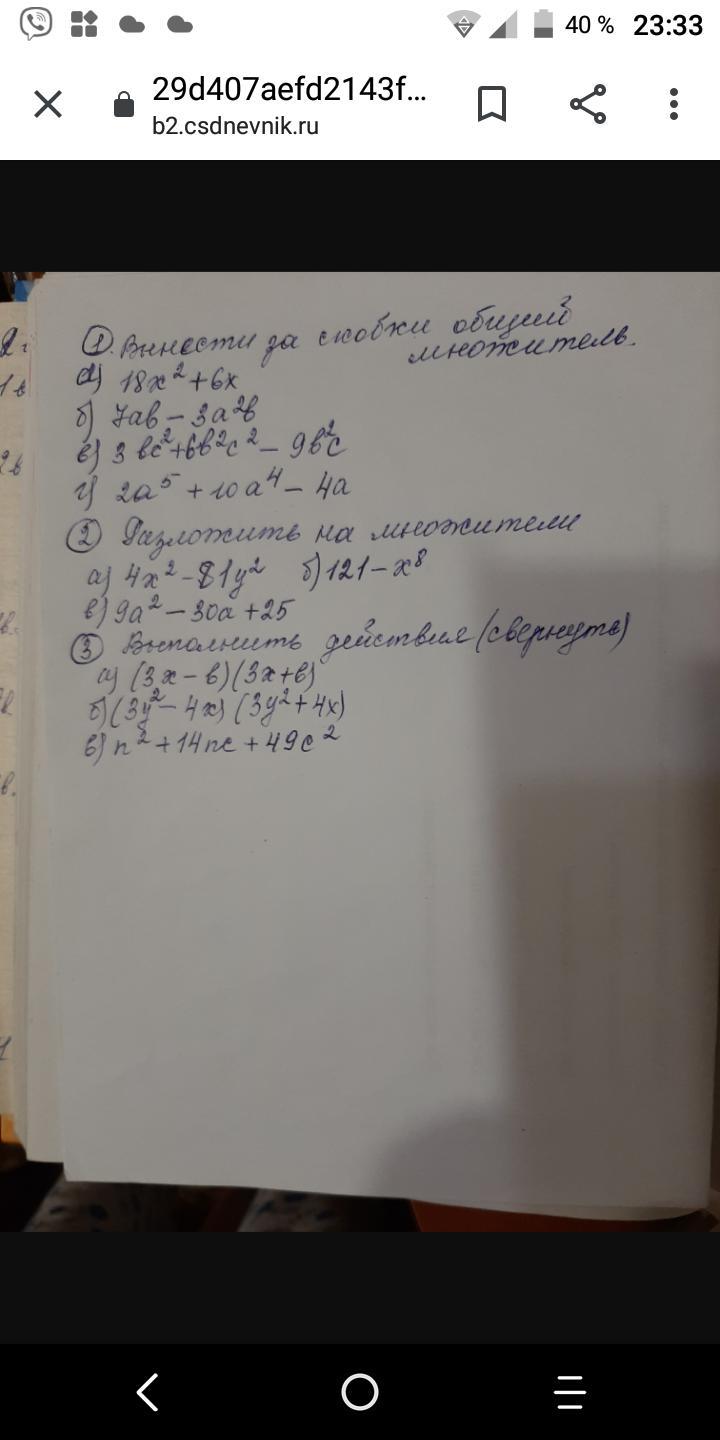 40 % 23:33
29d407aefd2143f...
b2.csdnevnik.ru
①. Вынести за скобки общий
множитель.
а) 18x² + 6x
б) 7ab – 3a²b
в) 3bc² + 6b²c² – 9b²c
г) 2a⁵ + 10a⁴ – 4a
② Разложить на множители
а) 4x² – 81y² б) 121 – x⁸
в) 9a² – 30a + 25
③ Выполнить действия (свернуть)
а) (3x – b)(3x + b)
б) (3y² – 4x) (3y² + 4x)
в) n² + 14nc + 49c²